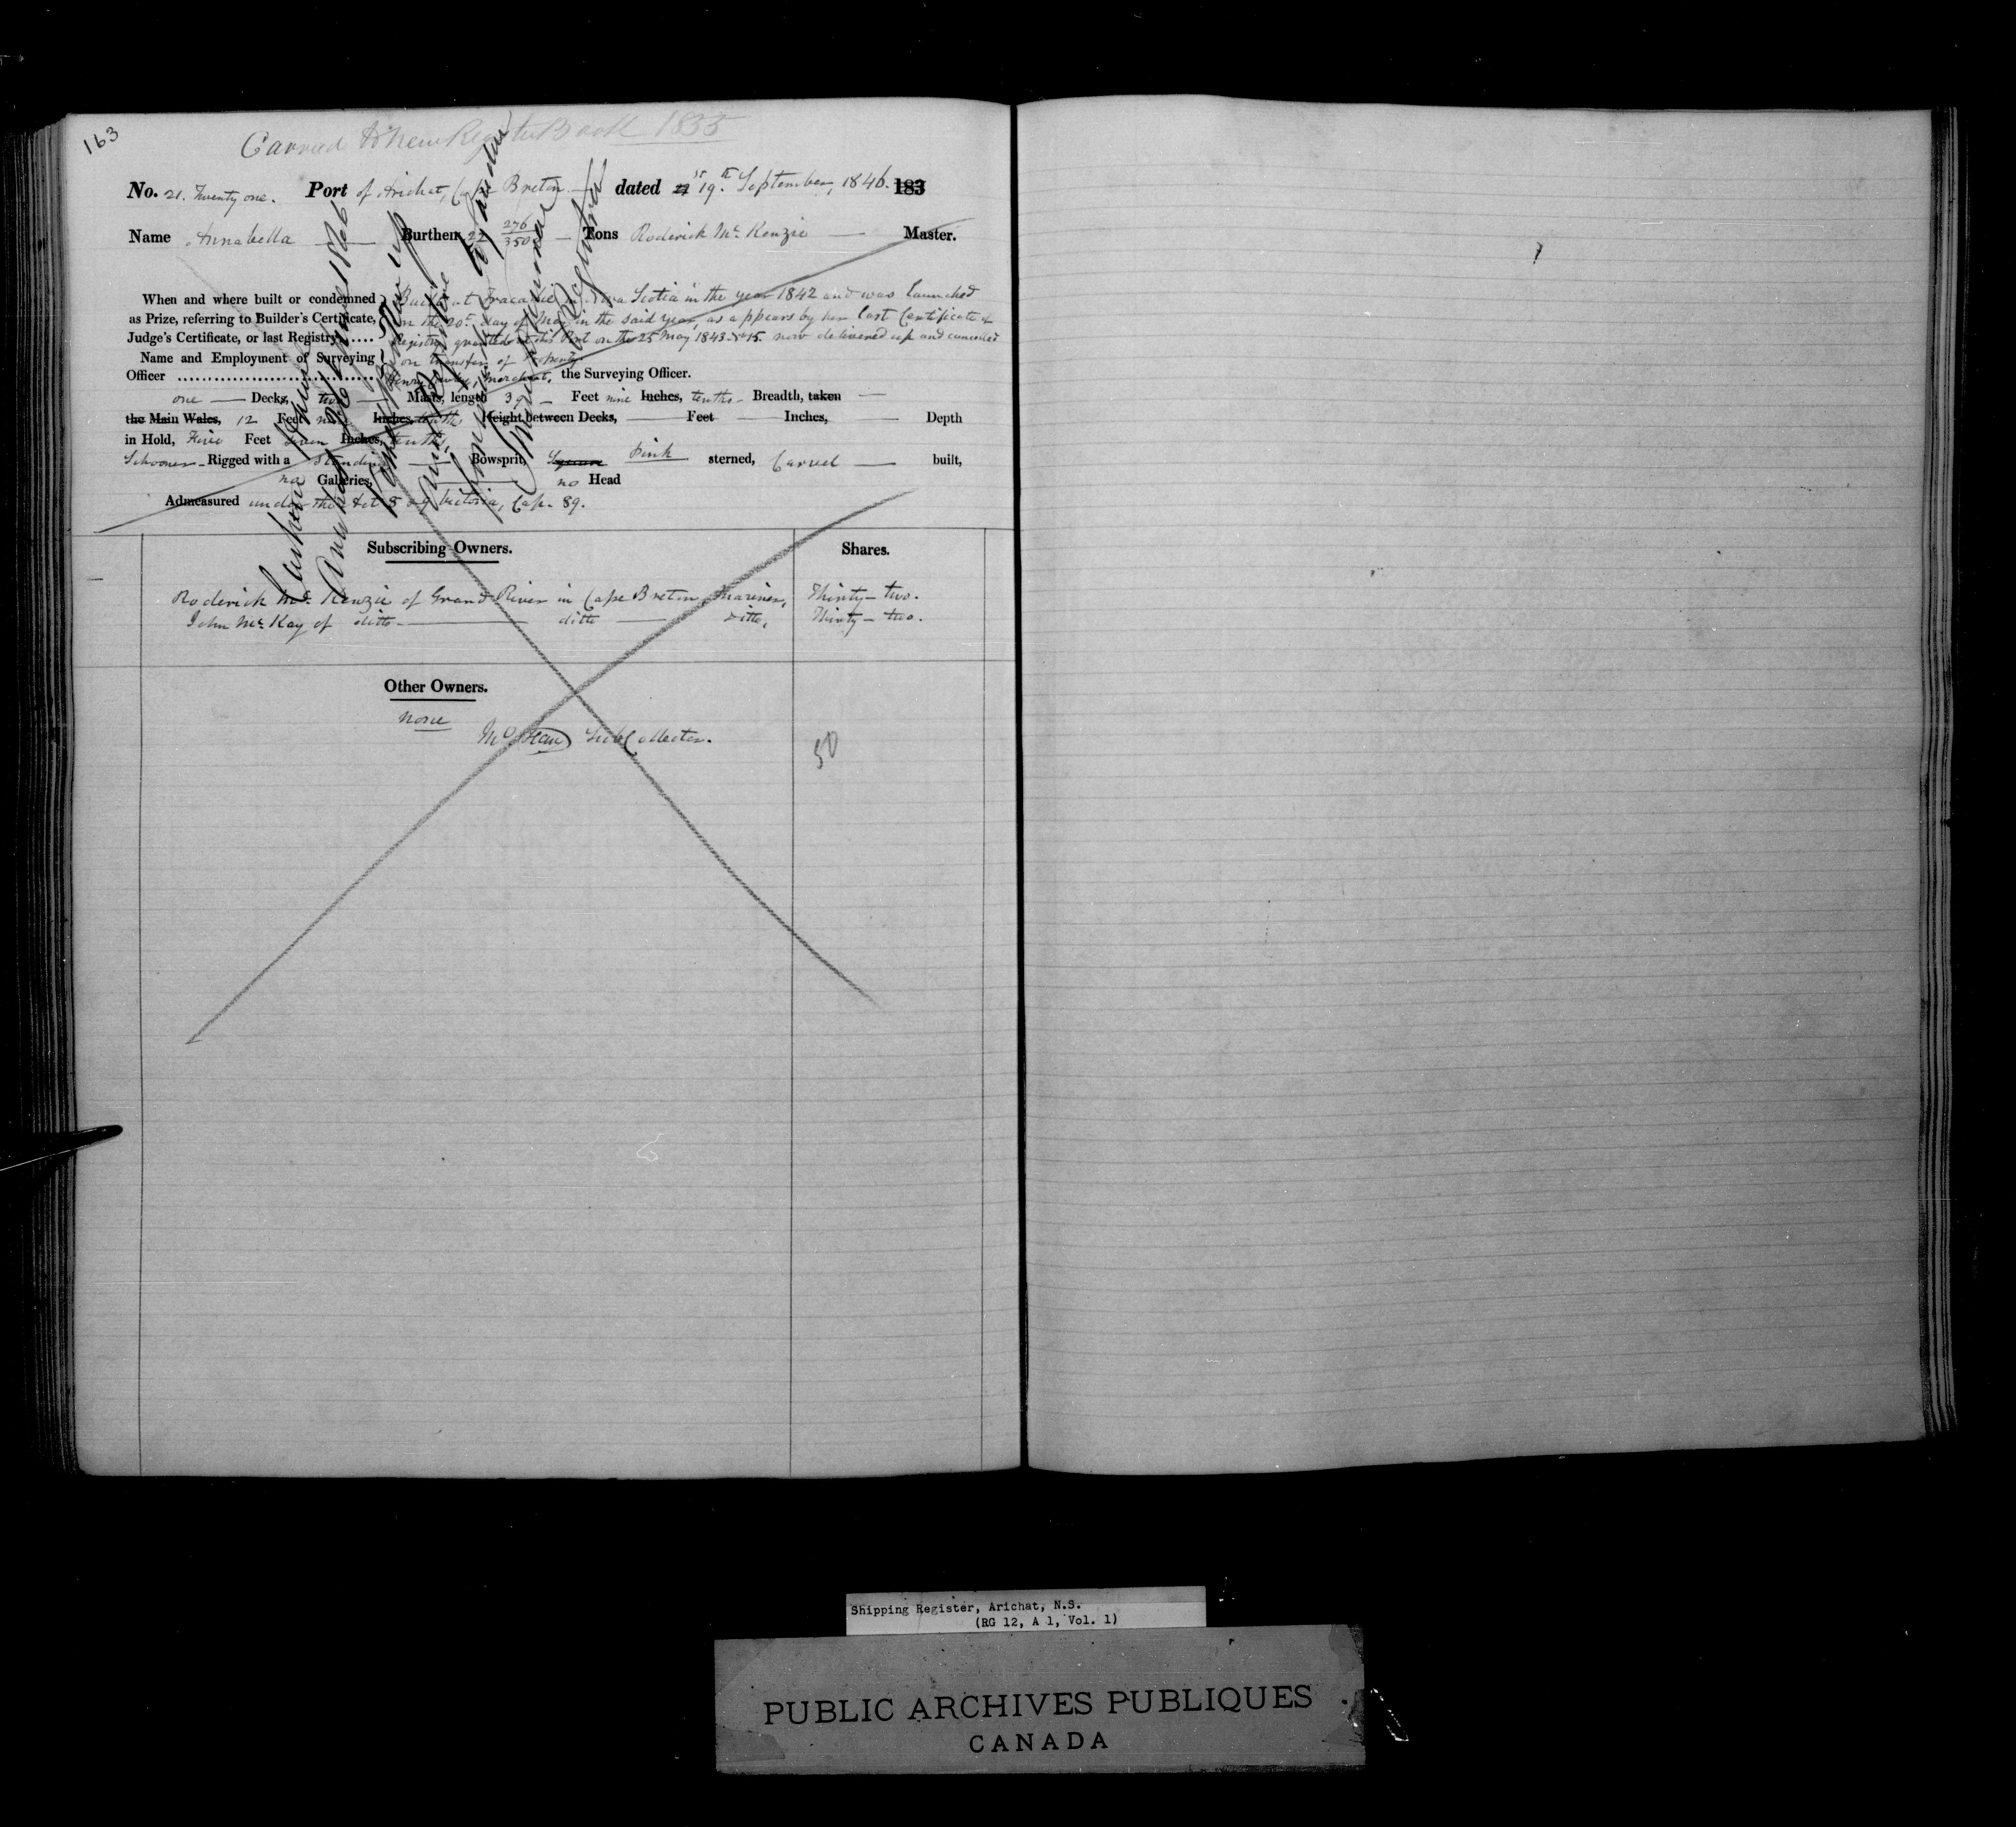 163
Carried to New Register Book 1855
No. 21. Twenty one. Port of Arichat, Cape Breton dated 19th September, 1846. 183
Name Annabella Burthen 22 276/3500 Tons Roderick Mc Kenzie Master.
When and where built or condemned
as Prize, referring to Builder's Certificate,
Judge's Certificate, or last Registry.....
Built at Tracadie in Nova Scotia in the year 1842 and was launched
on the 20th day of May in the said year, as appears by her last Certificate of
Registry granted at this Port on the 25 May 1843 No 15. now delivered up and cancelled
on transfer of Property
Name and Employment of Surveying
Officer Henry Merchant, the Surveying Officer.
one Decks, two Masts, length 39 Feet nine Inches, tenths Breadth, taken
the Main Wales, 12 Feet Inches, tenths Height between Decks, Feet Inches, Depth
in Hold, Five Feet seven Inches, tenths,
Schooner Rigged with a Standing Bowsprit, Square Pink sterned, Carvel built,
no Galleries, no Head
Admeasured under the Act 8 & 9 Victoria, Cap. 89.
Subscribing Owners. Shares.
Roderick Mc Kenzie of Grand River in Cape Breton, Mariner, Thirty-two.
John Mc Kay of ditto ditto ditto, Thirty-two.
Other Owners.
None
Sub Collector.
50
Shipping Register, Arichat, N.S.
(RG 12, A 1, Vol. 1)
PUBLIC ARCHIVES PUBLIQUES
CANADA